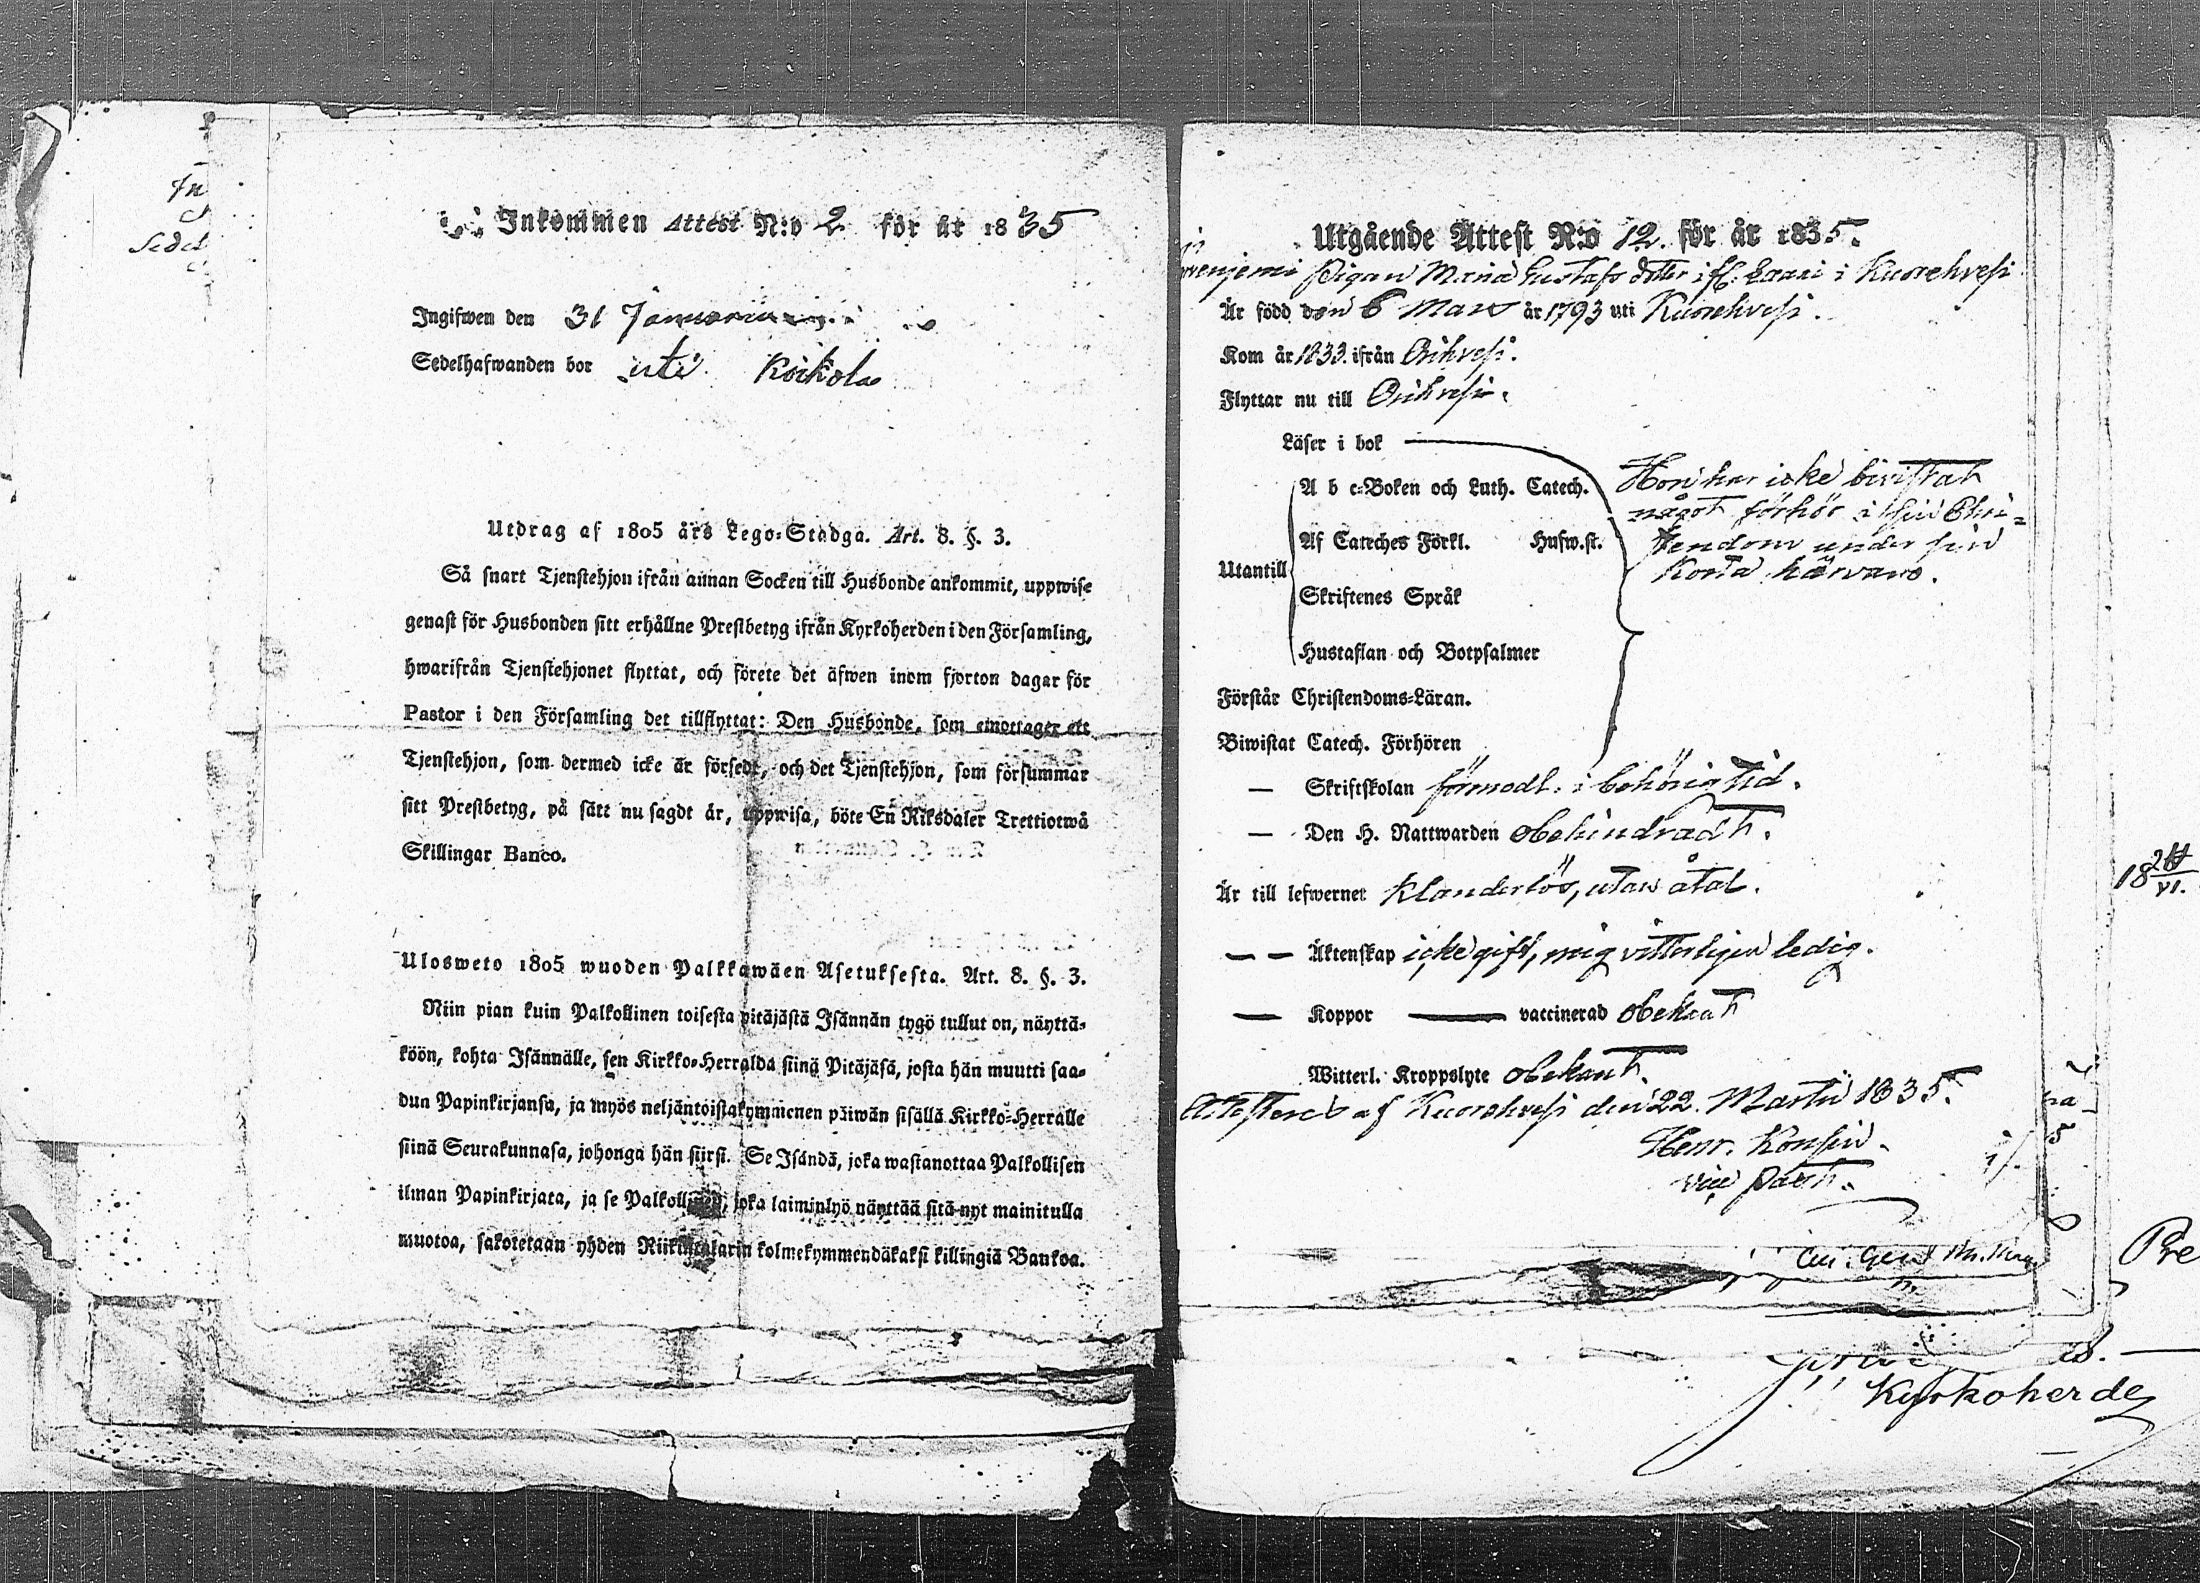 Inkommen Attest N:o 2 för år 1835
Ingifwen den 31 Januarii
Sedelhafwanden bor uti Koikola
Utdrag af 1805 års Lego-Stadga. Art. 8. §. 3.
Så snart Tjenstehjon ifrån annan Socken till Husbonde ankommit, uppwise
genast för Husbonden sitt erhållne Prestbetyg ifrån Kyrkoherden i den Församling,
hwarifrån Tjenstehjonet flyttat, och förete det äfwen inom fjorton dagar för
Pastor i den Församling det tillflyttat: Den Husbonde, som emottager ett
Tjenstehjon, som dermed icke är försedt, och det Tjenstehjon, som försummar
sitt Prestbetyg, på sätt nu sagdt är, uppwisa, böte En Riksdaler Trettiotwå
Skillingar Banco.
Ulosweto 1805 wuoden Palkkawäen Asetuksesta. Art. 8. §. 3.
Niin pian kuin Palkollinen toisesta pitäjästä Isännän tygö tullut on, näyttä-
köön, kohta Isännälle, sen Kirkko-Herralda siinä Pitäjäsä, josta hän muutti saa-
dun Papinkirjansa, ja myös neljäntoistakymmenen päiwän sisällä Kirkko-Herralle
siinä Seurakunnasa, johonga hän siirsi. Se Isändä, joka wastanottaa Palkollisen
ilman Papinkirjata, ja se Palkollinen, joka laiminlyö näyttää sitä nyt mainitulla
muotoa, sakotetaan yhden Riikintalarin kolmekymmendäkaksi killingiä Bankoa.
Utgående Attest N:o 12. för år 1835.
Pigan Maria Gustafs dotter i fl. Laari i Kuorehvesi
Är född den 6 Mars år 1793 uti Kuorehvesi.
Kom år 1833. ifrån Orihvesi.
Flyttar nu till Orihvesi.
Läser i bok
A b c-Boken och Luth. Catech.
Hon har icke bivistat
något förhör i sin Chri-
Af Cateches Förkl. Husw.st.
stendom under sin
Utantill
korta härvaro.
Skriftenes Språk
Hustaflan och Botpsalmer
Förstår Christendoms-Läran.
Biwistat Catech. Förhören
— Skriftskolan förmodl. i behörig tid.
— Den H. Nattwarden obehindradt.
Är till lefwernet klanderlös, utan åtal.
— — Äktenskap icke gift, mig vitterligen ledig.
— Koppor — vaccinerad obekant
Witterl. Kroppslyte obekant.
Attesterar af Kuorehvesi den 22. Martii 1835.
Henr. Konsin
vice Past.
Kyrkoherde